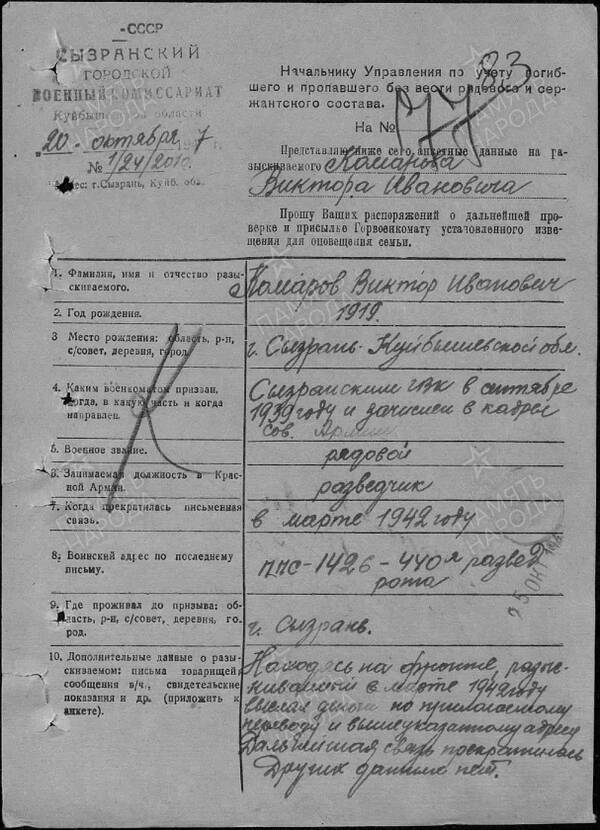 -СССР
СЫЗРАНСКИЙ
ГОРОДСКОЙ
ВОЕННЫЙ КОМИССАРИАТ
Куйбышевской области
20 октября 7 г.
№ 1/24/2010
Адрес: г.Сызрань, Куйб. обл.
83
Начальнику Управления по учету погиб-
шего и пропавшего без вести рядового и сер-
жантского состава.
На №
Представляю ниже сего анкетные данные на ра-
зыскиваемого Комарова
Виктора Ивановича
Прошу Ваших распоряжений о дальнейшей про-
верке и присылке Горвоенкомату установленного изве-
щения для оповещения семьи.
1. Фамилия, имя и отчество разы-
скиваемого.
Комаров Виктор Иванович
2. Год рождения.
1919.
3 Место рождения: область, р-н,
с/совет, деревня, город.
г. Сызрань-Куйбышевской обл.
4. Каким военкоматом призван,
когда, в какую часть и когда
направлен.
Сызранским гвк в сентябре
1939 году и зачислен в кадры
Сов. Армии
5. Военное звание.
рядовой
6. Занимаемая должность в Крас-
ной Армии.
разведчик
7. Когда прекратилась письменная
связь.
в марте 1942 году
8. Воинский адрес по последнему
письму.
ппс-1426-440я развед
рота
25 ОКТ
9. Где проживал до призыва: об-
ласть, р-н, с/совет, деревня, го-
род.
г. Сызрань.
10. Дополнительные данные о разы-
скиваемом: письма товарищей,
сообщения в/ч., свидетельские
показания и др. (приложить к
анкете).
Находясь на фронте, разыс-
киваемый в марте 1942 году
выслал деньги по прилагаемому
переводу и вышеуказанному адресу
Дальнейшая связь прекратилась
Других данных нет.
ПАМЯТЬ
НАРОДА